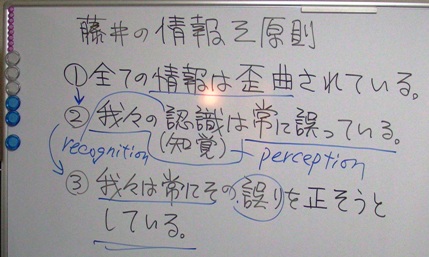 藤井の情報三原則
①全ての情報は歪曲されている。
②我々の認識は常に誤っている。
recognition (知覚) perception
③我々は常にその誤りを正そうと
している。